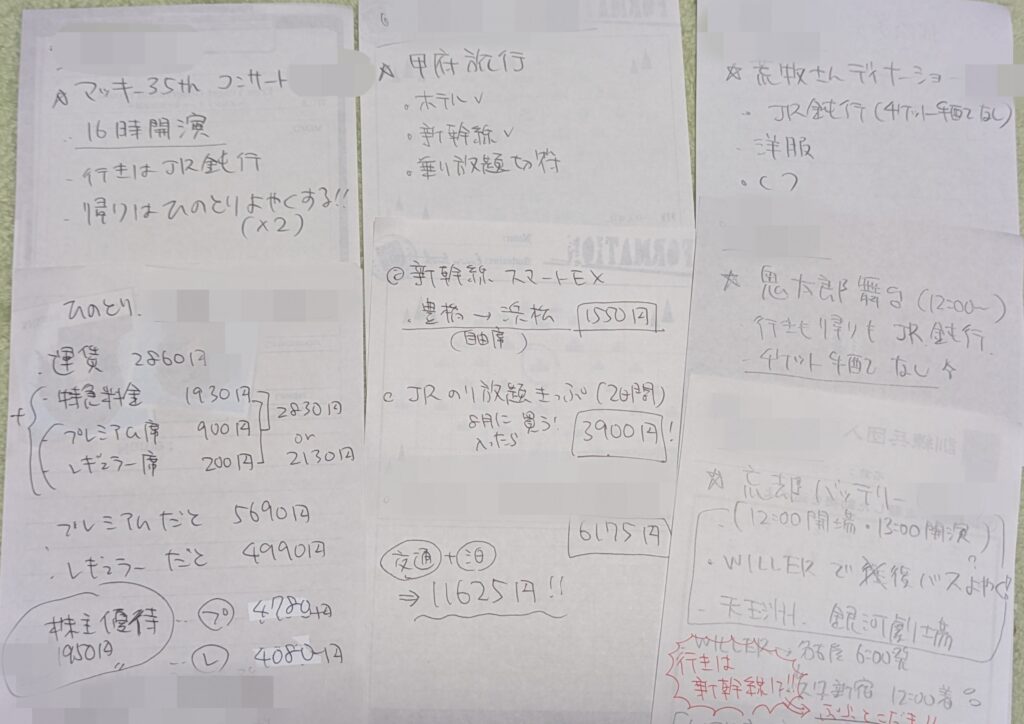 ☆ マッキー35th コンサート
・16時開演
- 行きはJR鈍行
- 帰りはひのとりよやくする!!
(×2)
ひのとり.
・運賃 2860円
+ - 特急料金 1930円
プレミアム席 900円
レギュラー席 200円
2830円
or
2130円
プレミアムだと 5690円
・レギュラーだと 4990円
株主優待 … プ 4780円
1950円
… レ 4080円
☆ 甲府旅行
・ホテル✓
・新幹線✓
・乗り放題切符
@ 新幹線 スマートEX
・豊橋→浜松 1550円
(自由席)
c JRのり放題きっぷ (2日間)
8月に入ったら 買う! 3900円!
6175円
交通+泊
⇒ 11625円!!
☆ 荒牧さんディナーショー
・JR鈍行(チケット手配でなし)
- 洋服
・( )
☆ 鬼太郎 舞台 (12:00~)
行きも帰りもJR鈍行.
- チケット手配でなし
INFORMATION
☆ 忘却バッテリー
・(12:00開場・13:00開演)
・WILLERで バスよやく?
- 天王洲 銀河劇場
WILLER 名古屋 6:00発
行きは
新幹線!?!!
新宿 12:00着